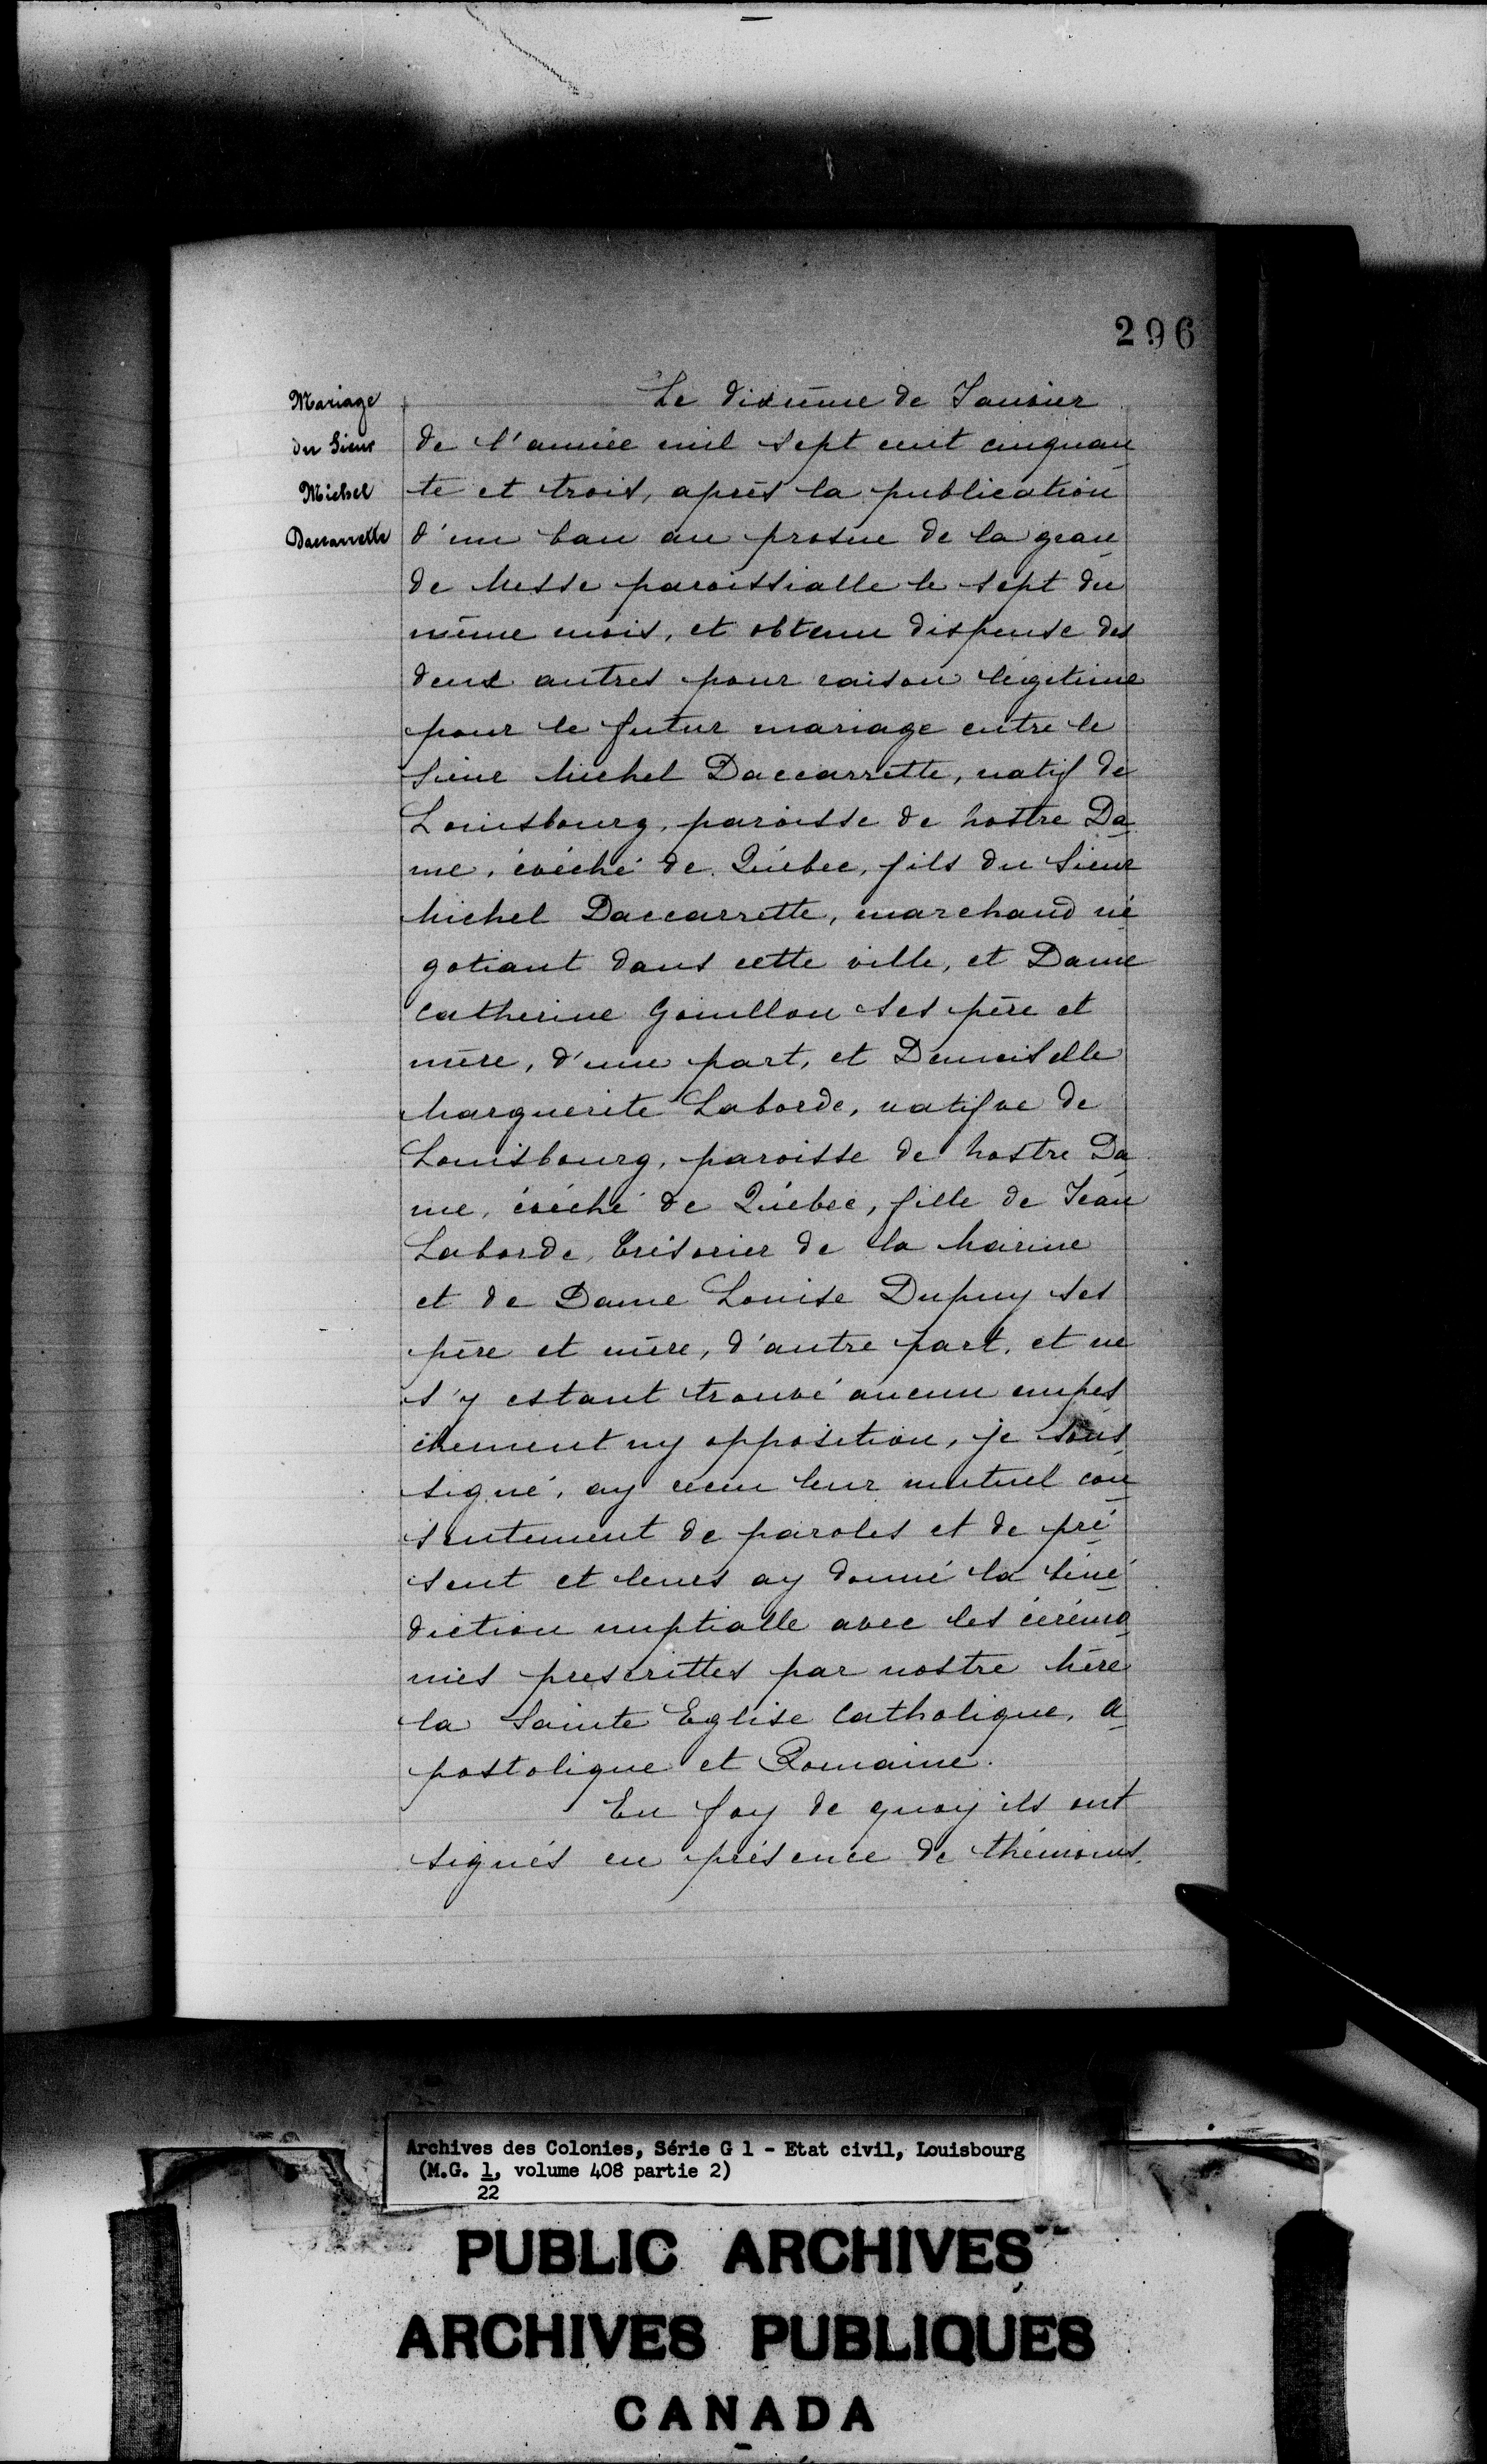 296
Mariage
du Sieur
Michel
Daccarrette
Le dixième de Janvier
de l'année mil sept cent cinquan
te et trois, après la publication
d'un ban au prosne de la gran
de Messe paroissialle le sept du
même mois, et obtenu dispense des
deux autres pour raison légitime
pour le futur mariage entre le
Sieur Michel Daccarrette, natif de
Louisbourg, paroisse de Nostre Da
me, évéché de Québec, fils du Sieur
Michel Daccarrette, marchand né
gotiant dans cette ville, et Dame
Catherine Gonillon ses père et
mère, d'une part, et Demoiselle
Marguerite Laborde, natifve de
Louisbourg, paroisse de Nostre Da
me, évéché de Québec, fille de Jean
Laborde, Trésorier de la Marine
et de Dame Louise Dupuy ses
père et mère, d'autre part, et ne
s'y estant trouvé aucun empes
chement ny opposition, je sous
signé, ay receu leur mutuel con
sentement de paroles et de pré
sent et leurs ay donné la béné
diction nuptialle avec les cérémo
nies prescrittes par nostre Mère
la Sainte Eglise Catholique, A
postolique et Romaine.
En foy de quoy ils ont
signés en présence de thémoins
Archives des Colonies, Série G 1 - Etat civil, Louisbourg
(M.G. 1, volume 408 partie 2)
22
PUBLIC ARCHIVES
ARCHIVES PUBLIQUES
CANADA